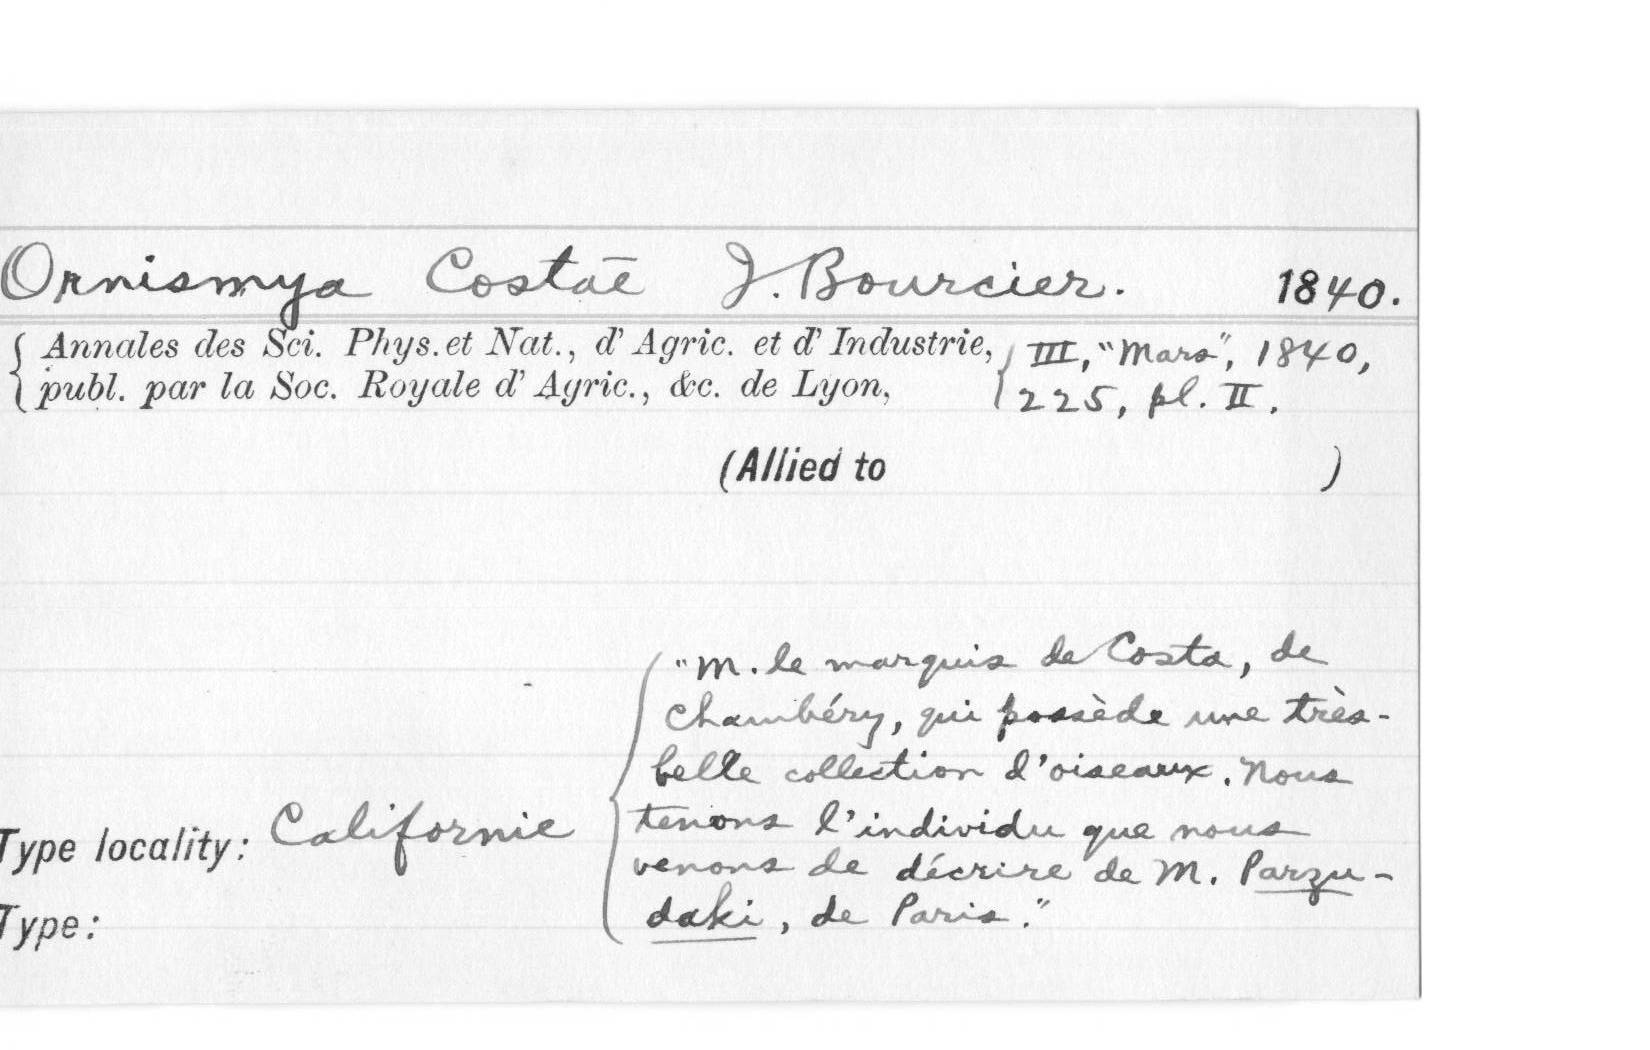 Ornismya Costae J. Bourcier. 1840.
{ Annales des Sci. Phys. et Nat., d' Agric. et d' Industrie, { III, "Mars", 1840,
publ. par la Soc. Royale d' Agric., &c. de Lyon, 225, pl. II.
(Allied to )
"M. le marquis de Costa, de
Chambéry, qui possède une très-
belle collection d'oiseaux. Nous
Type locality: Californie { tenons l'individu que nous
venons de décrire de M. Parzu-
Type: daki, de Paris."